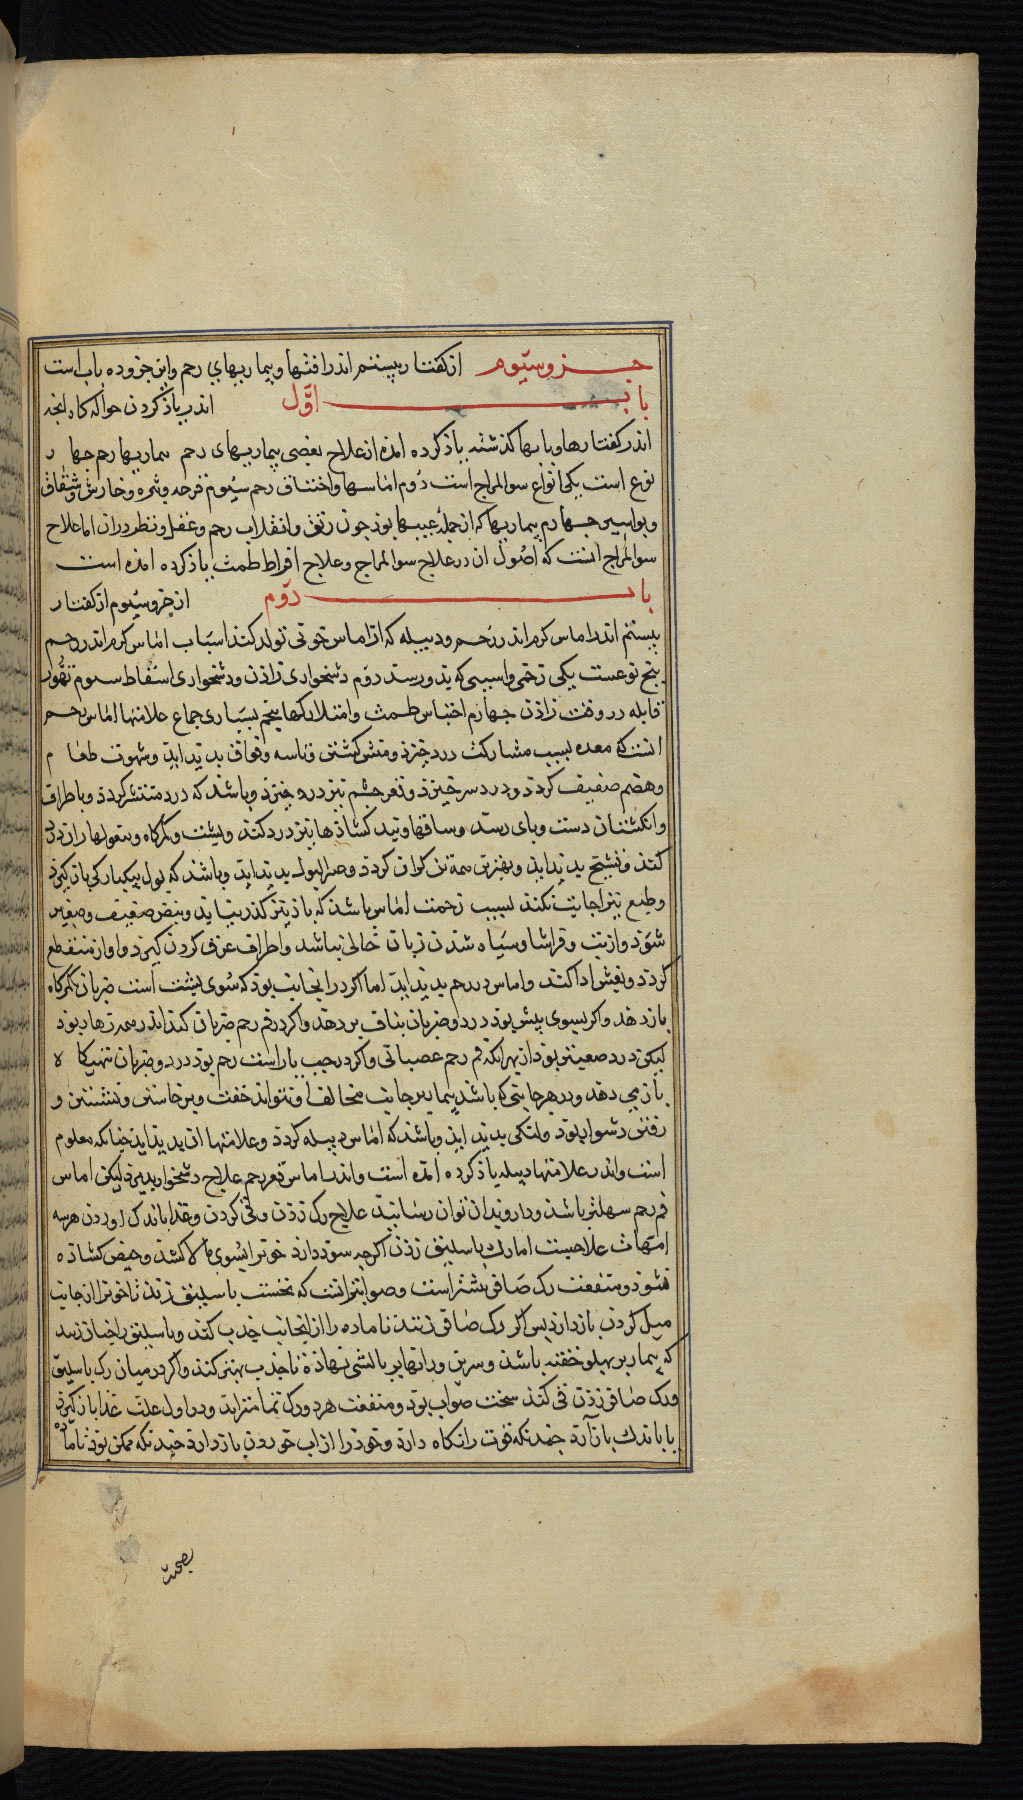 جزو سیوم از کفتار بیستم اندر افتها و بیماریهای رحم و این جزو ده باب است
باب اول اندر یاذ کردن حواله کاه انجه
اندر کفتارها و بابها کذشته یاذ کرده امذه از علاج بعضی بیماریهای رحم بیماریها رحم جهار
نوع است یکی انواع سوالمزاج است دوم اماسها و اختناق رحم سیوم قرحه و بثره و خارش و شقاق
و بواسیر جهارم بیماریها که از جمله عیبها بوذ جون رتق و انقلاب رحم و عفل و نظر دران اما علاج
سوالمزاج انست که اصول ان در علاج سوالمزاج و علاج افراط طمث یاذ کرده امذه است
باب دوم از جزو سیوم از کفتار
بیستم اندر اماس کرم اندر رحم و دبیله که از اماس خونی تولد کند اسباب اماس کرم اندر رحم
پنج نوعست یکی زخمی و اسیبی که بذو رسد دوم دشخواری زاذن و دشخواری اسقاط سیوم تهور
قابله در وقت زاذن جهارم احتباس طمث و امتلا رکها پنجم بسیاری جماع علامتها اماس رحم
انست که معده بسبب مشارکت درد خیزذ و منش کشتن و تاسه و فواق بدید ایذ و شهوت طعام
و هضم ضعیف کردذ و درد سر خیزذ و قعر جشم نیز درد خیزذ و باشذ که درد منتشر کردذ و باطراف
و انکشتان دست و پای رسد و ساقها و بند کشاذها نیز درد کند و پشت و کمرکاه و بیغولها ران درد
کند و تشنج بدید ایذ و بهترین همه تن کران کردذ و عسر البول بدید ایذ و باشذ که بول بیکبارکی باز کیرذ
و طبع نیز اجابت نکند بسبب زحمت اماس باشذ که باذ نیز کذر نیابد و نبض ضعیف و صغیر
شوذ و از تب و قراشا و سیاه شدن زبان خالی نباشد و اطراف عرق کردن کیرذ و اواز منقطع
کردد و بغشی ادا کند و اماس در رحم بدید ایذ اما اکر در انجانب بوذ که سوی پشت است ضربان کمرکاه
باز دهد و اکر بسوی پیش بوذ درد و ضربان بناف بر دهد و اکر در فم رحم ضربان کند اندر همه زهار بوذ
لیکن درد صعبتر بوذ از بهر انکه فم رحم عصبانی و اکر در جپ یا راست رحم بوذ درد و ضربان تهیکاه
باز می دهد و در هر جانبی که باشد بیمار بر جانب مخالف او نتواند خفت و برخاستن و نشستن و
رفتن دشوار بوذ و لنکی بدید ایذ و باشذ که اماس دبیله کردذ و علامتها ان بدید ایذ جنانکه معلوم
است و اندر علامتها دبیله یاذ کرده امذه است و اندر اماس قعر رحم علاج دشخوار پذیرذ لیکن اماس
فم رحم سهلتر باشد و دارو بدان توان رسانید علاج رک زذن و قی کردن و غذا باندک اوردن هر سه
امهات علاجست اما رک باسلیق زذن اکرجه سوذ دارذ خون را بسوی بالا کشد و حیض کشاذه
نشوذ و منفعت رک صافن بیشتر است و صوابتر انست که نخست باسلیق زنند تا خون را از جانب
میل کردن باز دارذ پس اکر رک صافن زنند تا ماده را از انجانب جذب کند و باسلیق را جنان زنند
که بیمار بر پهلو خفته باشذ و سرین و رانها بر بالشی نهاذه تا جذب بهتر کند و اکر در میان رک باسلیق
و رک صافن زذن قی کند سخت صواب بوذ و منفعت هر دو رک تمامتر اید و در اول علت غذا باز کیرذ
یا باندک باز آرذ جندانکه قوت را نکاه دارد و خود را از اب خوردن باز دارذ جندانکه ممکن بوذ تا ماده
بصحت